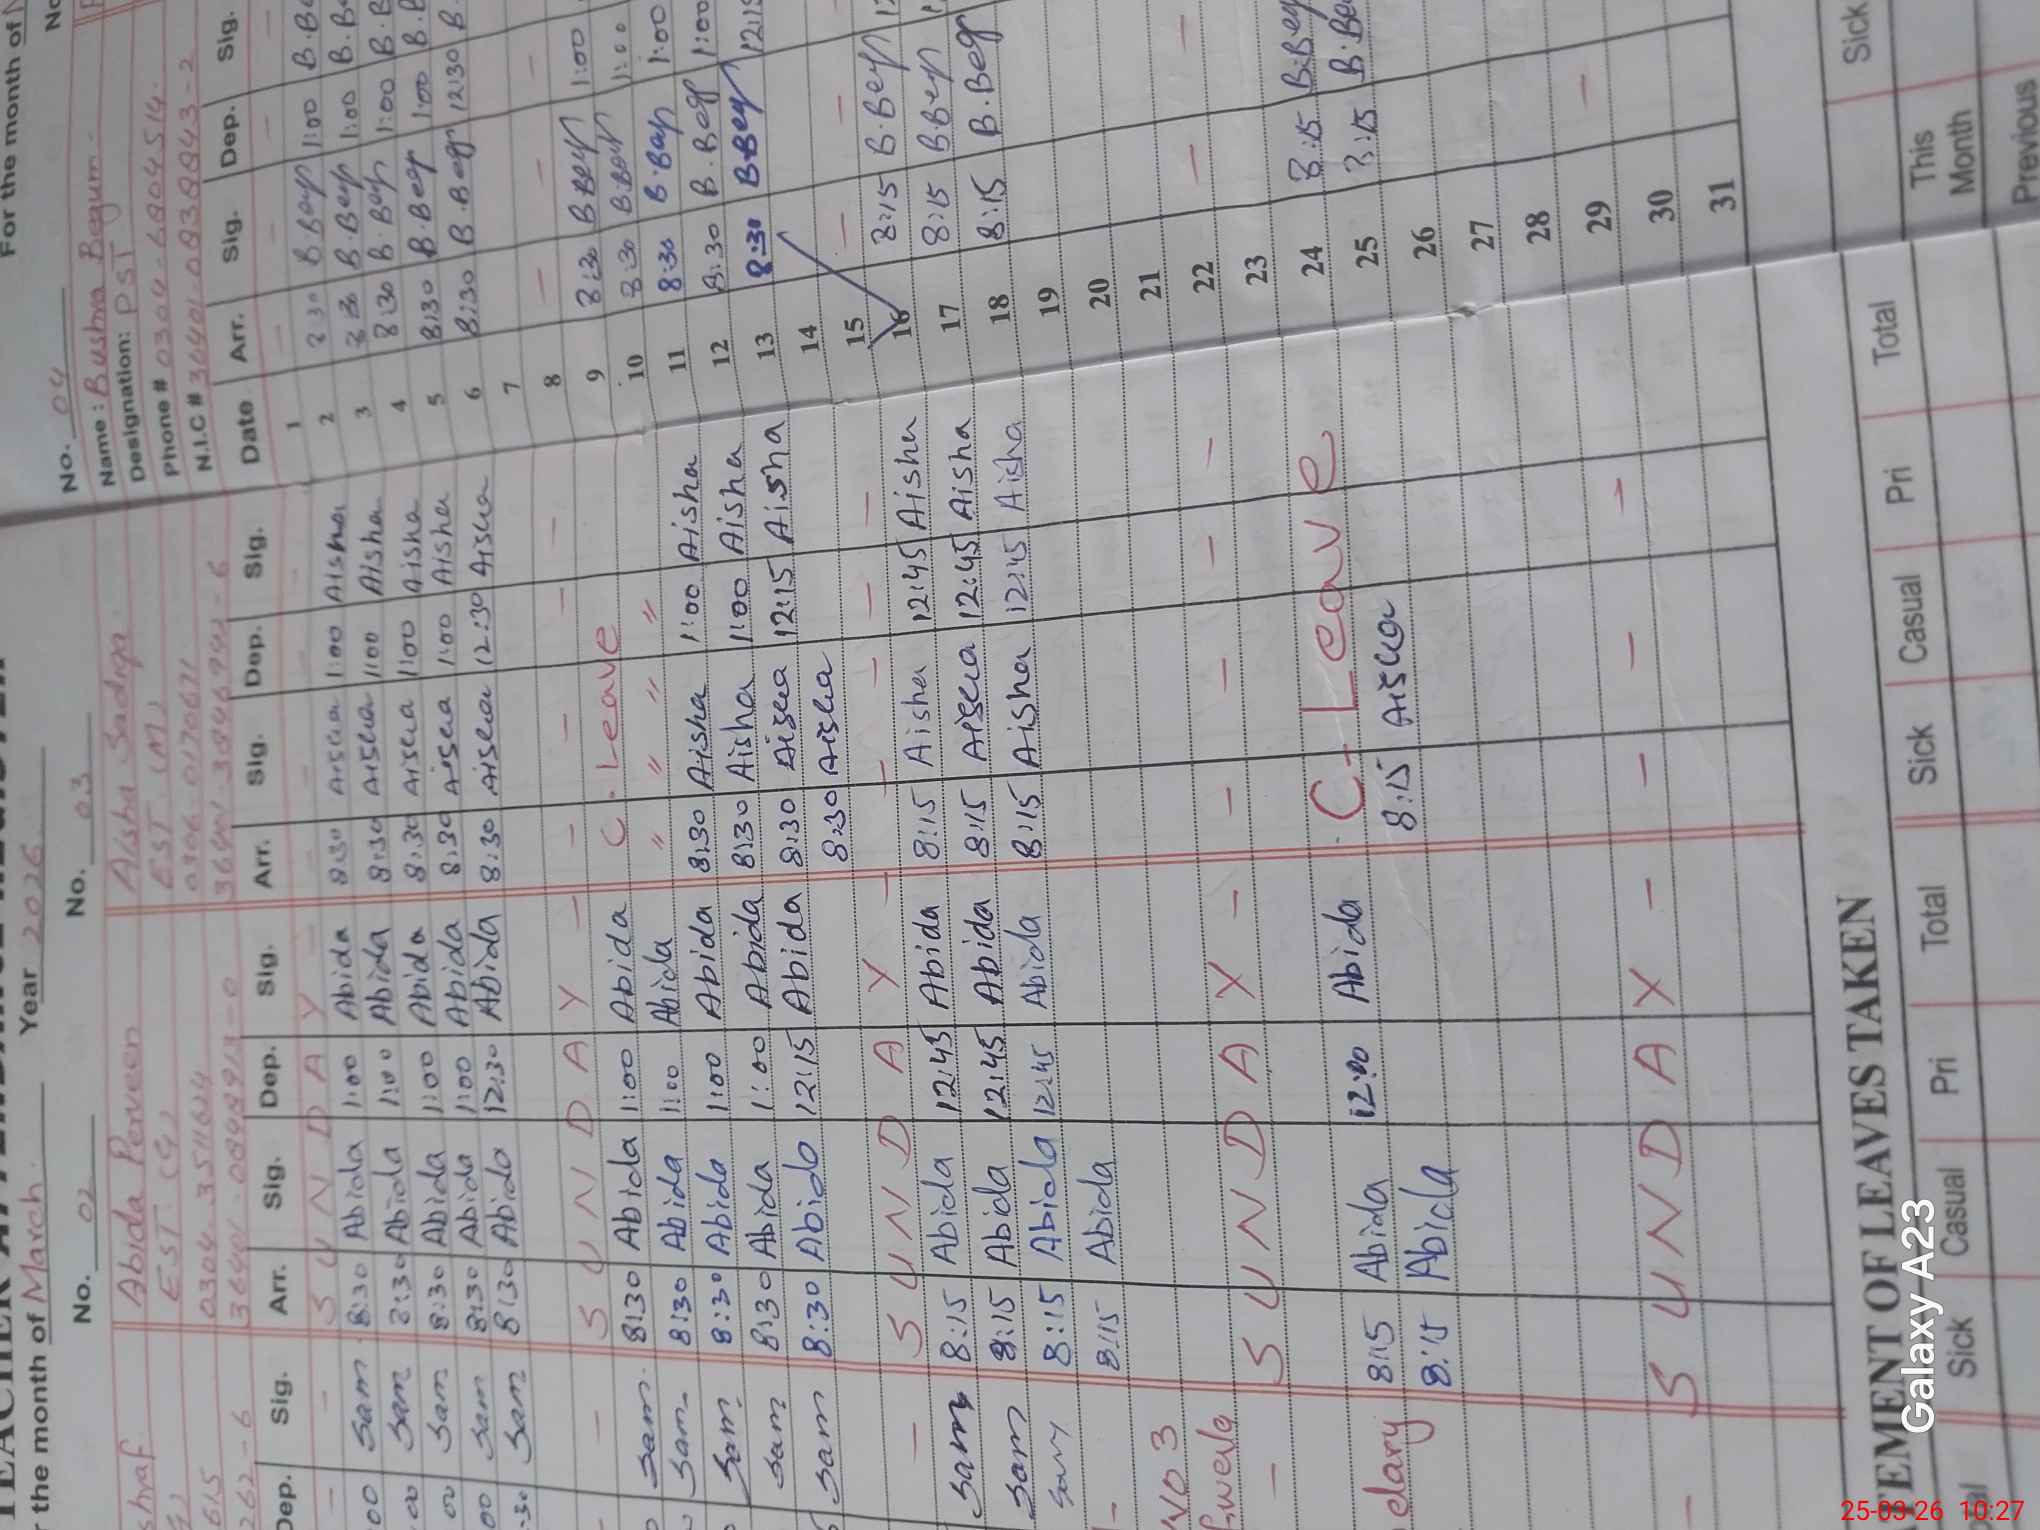 TEACHER ATTENDANCE REGISTER
r the month of March. Year 2026
For the month of
No. 02
No. 03
No. 04
shraf Abida Perveen Aisha Sadiqa Name : Bushra Begum
EST (G) EST (M) Designation: PST
615 0304-3511624 0306-0170671 Phone #
262-6 N.I.C #
Dep. Sig. Arr. Sig. Dep. Sig. Arr. Sig. Dep. Sig. Date Arr. Sig. Dep. Sig.
- - S U N D A Y - - - - - 1 - - - -
00 Sam 8:30 Abida 1:00 Abida 8:30 Aisha 1:00 Aisha 2 8 30 B.Beg 1:00 B.Be
00 Sam 8:30 Abida 1:00 Abida 8:30 Aisha 1:00 Aisha 3 8 30 B.Beg 1:00 B.B
00 Sam 8:30 Abida 1:00 Abida 8:30 Aisha 1:00 Aisha 4 8:30 B.Beg 1:00 B.B
00 Sam 8:30 Abida 1:00 Abida 8:30 Aisha 1:00 Aisha 5 8:30 B.Beg 1:00 B.B
:30 Sam 8:30 Abida 12:30 Abida 8:30 Aisha 12:30 Aisha 6 8:30 B.Beg 12:30 B.
7
- S U N D A Y - - - - - 8 - - -
Sam 8:30 Abida 1:00 Abida C. Leave 9 8:30 B.Beg 1:00
Sam 8:30 Abida 1:00 Abida " " " " 10 8:30 B.Beg 1:00
Sam 8:30 Abida 1:00 Abida 8:30 Aisha 1:00 Aisha 11 8:30 B.Beg 1:00
Sam 8:30 Abida 1:00 Abida 8:30 Aisha 1:00 Aisha 12 8:30 B.Beg 1:00
Sam 8:30 Abida 12:15 Abida 8:30 Aisha 12:15 Aisha 13 8:30 B.Beg 12:15
8:30 Aisha 14
- S U N D A Y - - - - - 15 - -
Sam 8:15 Abida 12:45 Abida 8:15 Aisha 12:45 Aisha 16 8:15 B.Beg
Sam 8:15 Abida 12:45 Abida 8:15 Aisha 12:45 Aisha 17 8:15 B.Beg
Sam 8:15 Abida 12:45 Abida 8:15 Aisha 12:45 Aisha 18 8:15 B.Beg
8:15 Abida 19
20
21
- S U N D A Y - - - - - 22 - -
23
8:15 Abida 12:00 Abida C- Leave 24 8:15 B.Beg
8:15 Abida 8:15 Aisha 25 8:15 B.Be
26
27
28
S U N D A Y - - - - 29 -
30
31
TEMENT OF LEAVES TAKEN
al Sick Casual Pri Total Sick Casual Pri Total This Month Sick
Previous
Galaxy A23
25-03-26 10:27